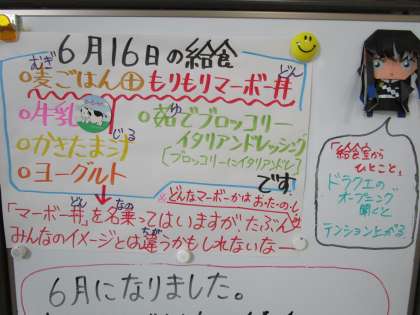 6月16日の給食
○麦ごはん⊕もりもりマーボー丼
むぎ
どん
○牛乳
○かきたま汁
じる
○ヨーグルト
○茹でブロッコリー
ゆ
イタリアンドレッシング
[ブロッコリーにイタリアンドレ]
です。
※どんなマーボーかはおたのしみ
「マーボー丼」を名乗ってはいますがたぶん
どん
なの
みんなのイメージとは違うかもしれないなー
ちが
「給食室から
ひとこと」
ドラクエの
オープニング
聞くと
テンション上がる
6月になりました。